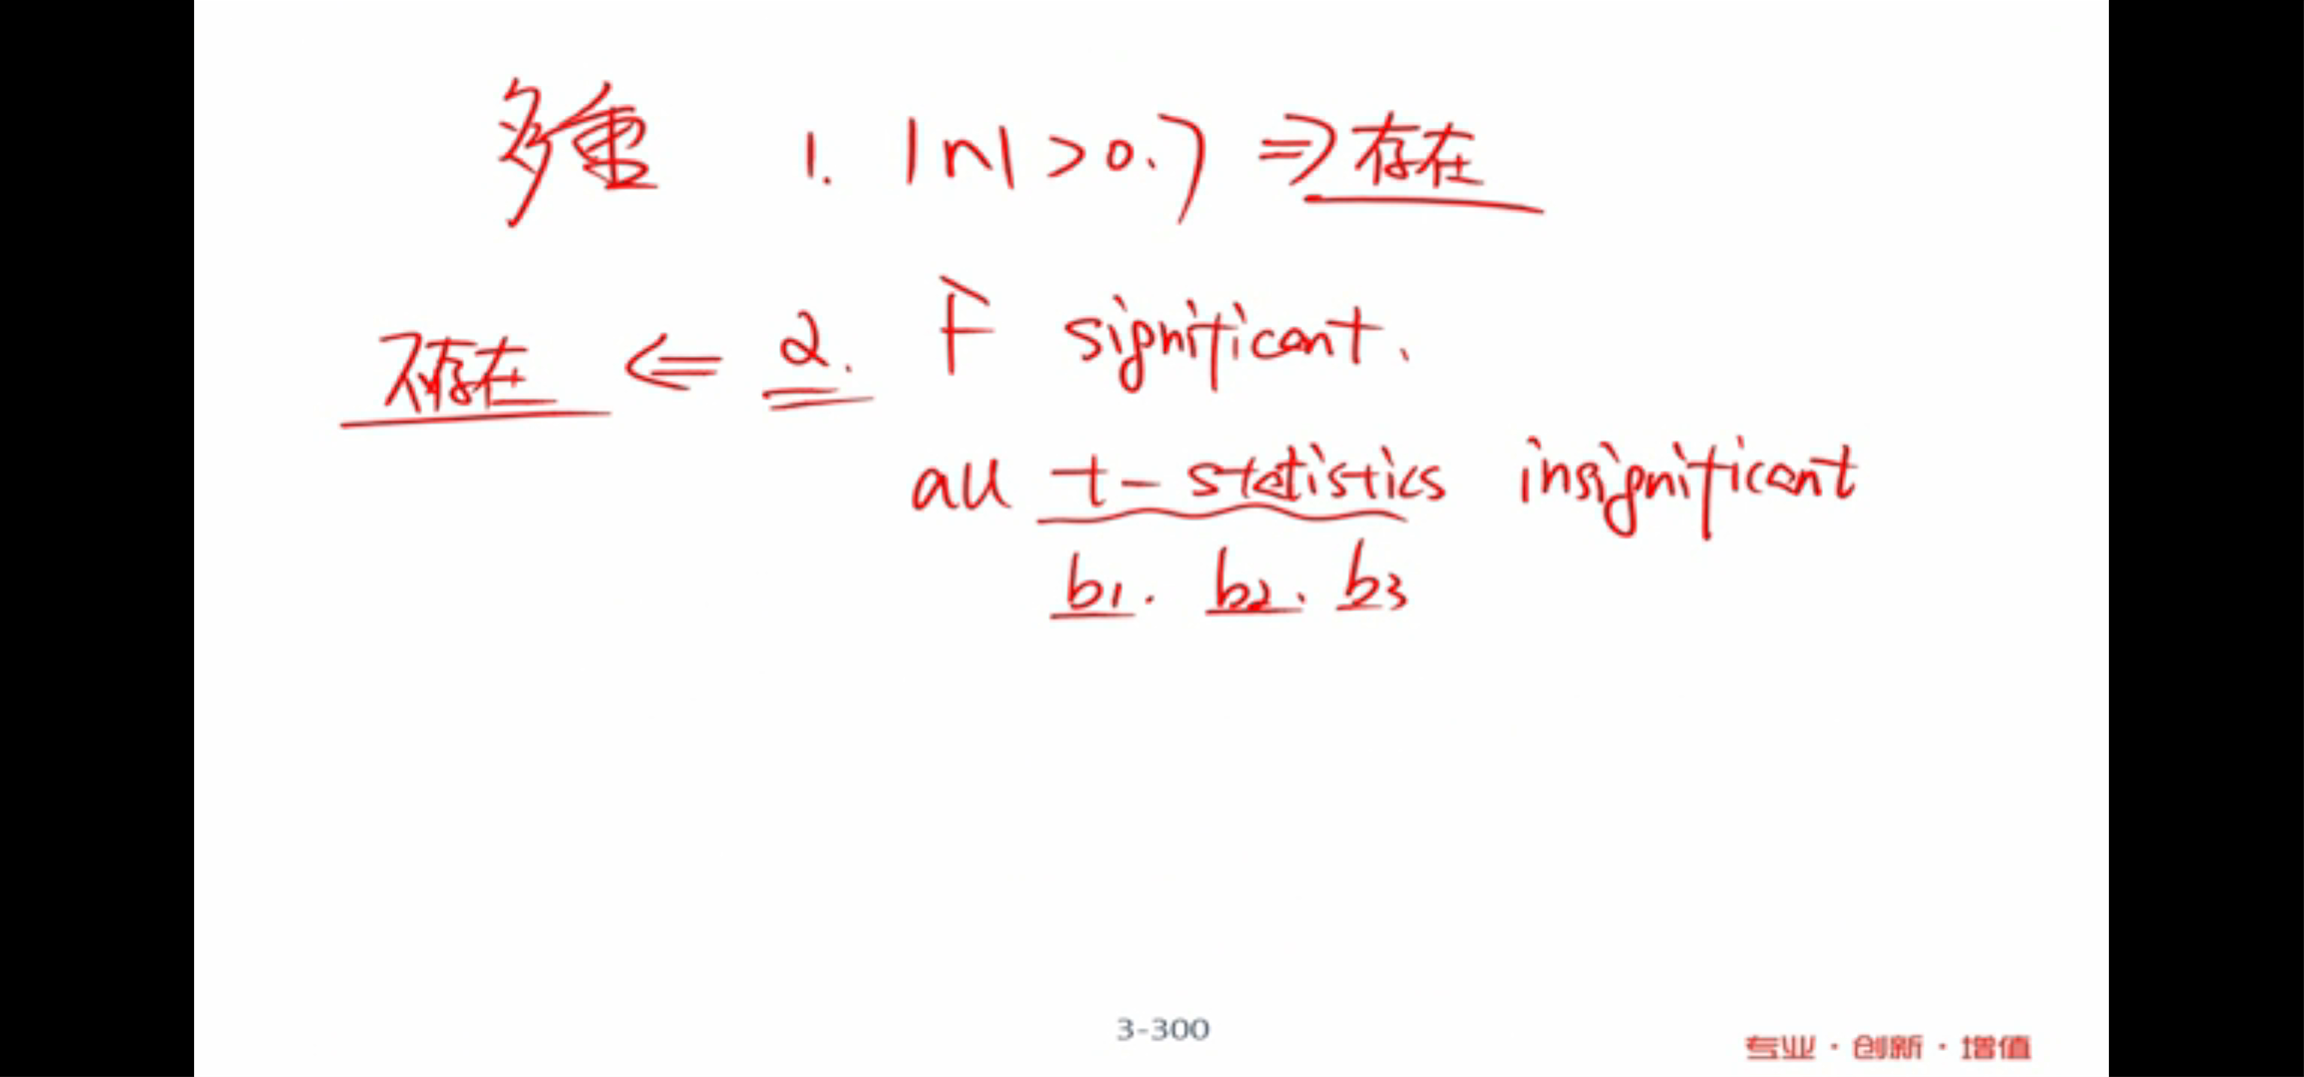 多重 1. |r|>0.7 ⇒存在
不存在 ⇐ 2. F significant.
all t-statistics insignificant
b1. b2. b3
3-300
专业·创新·增值